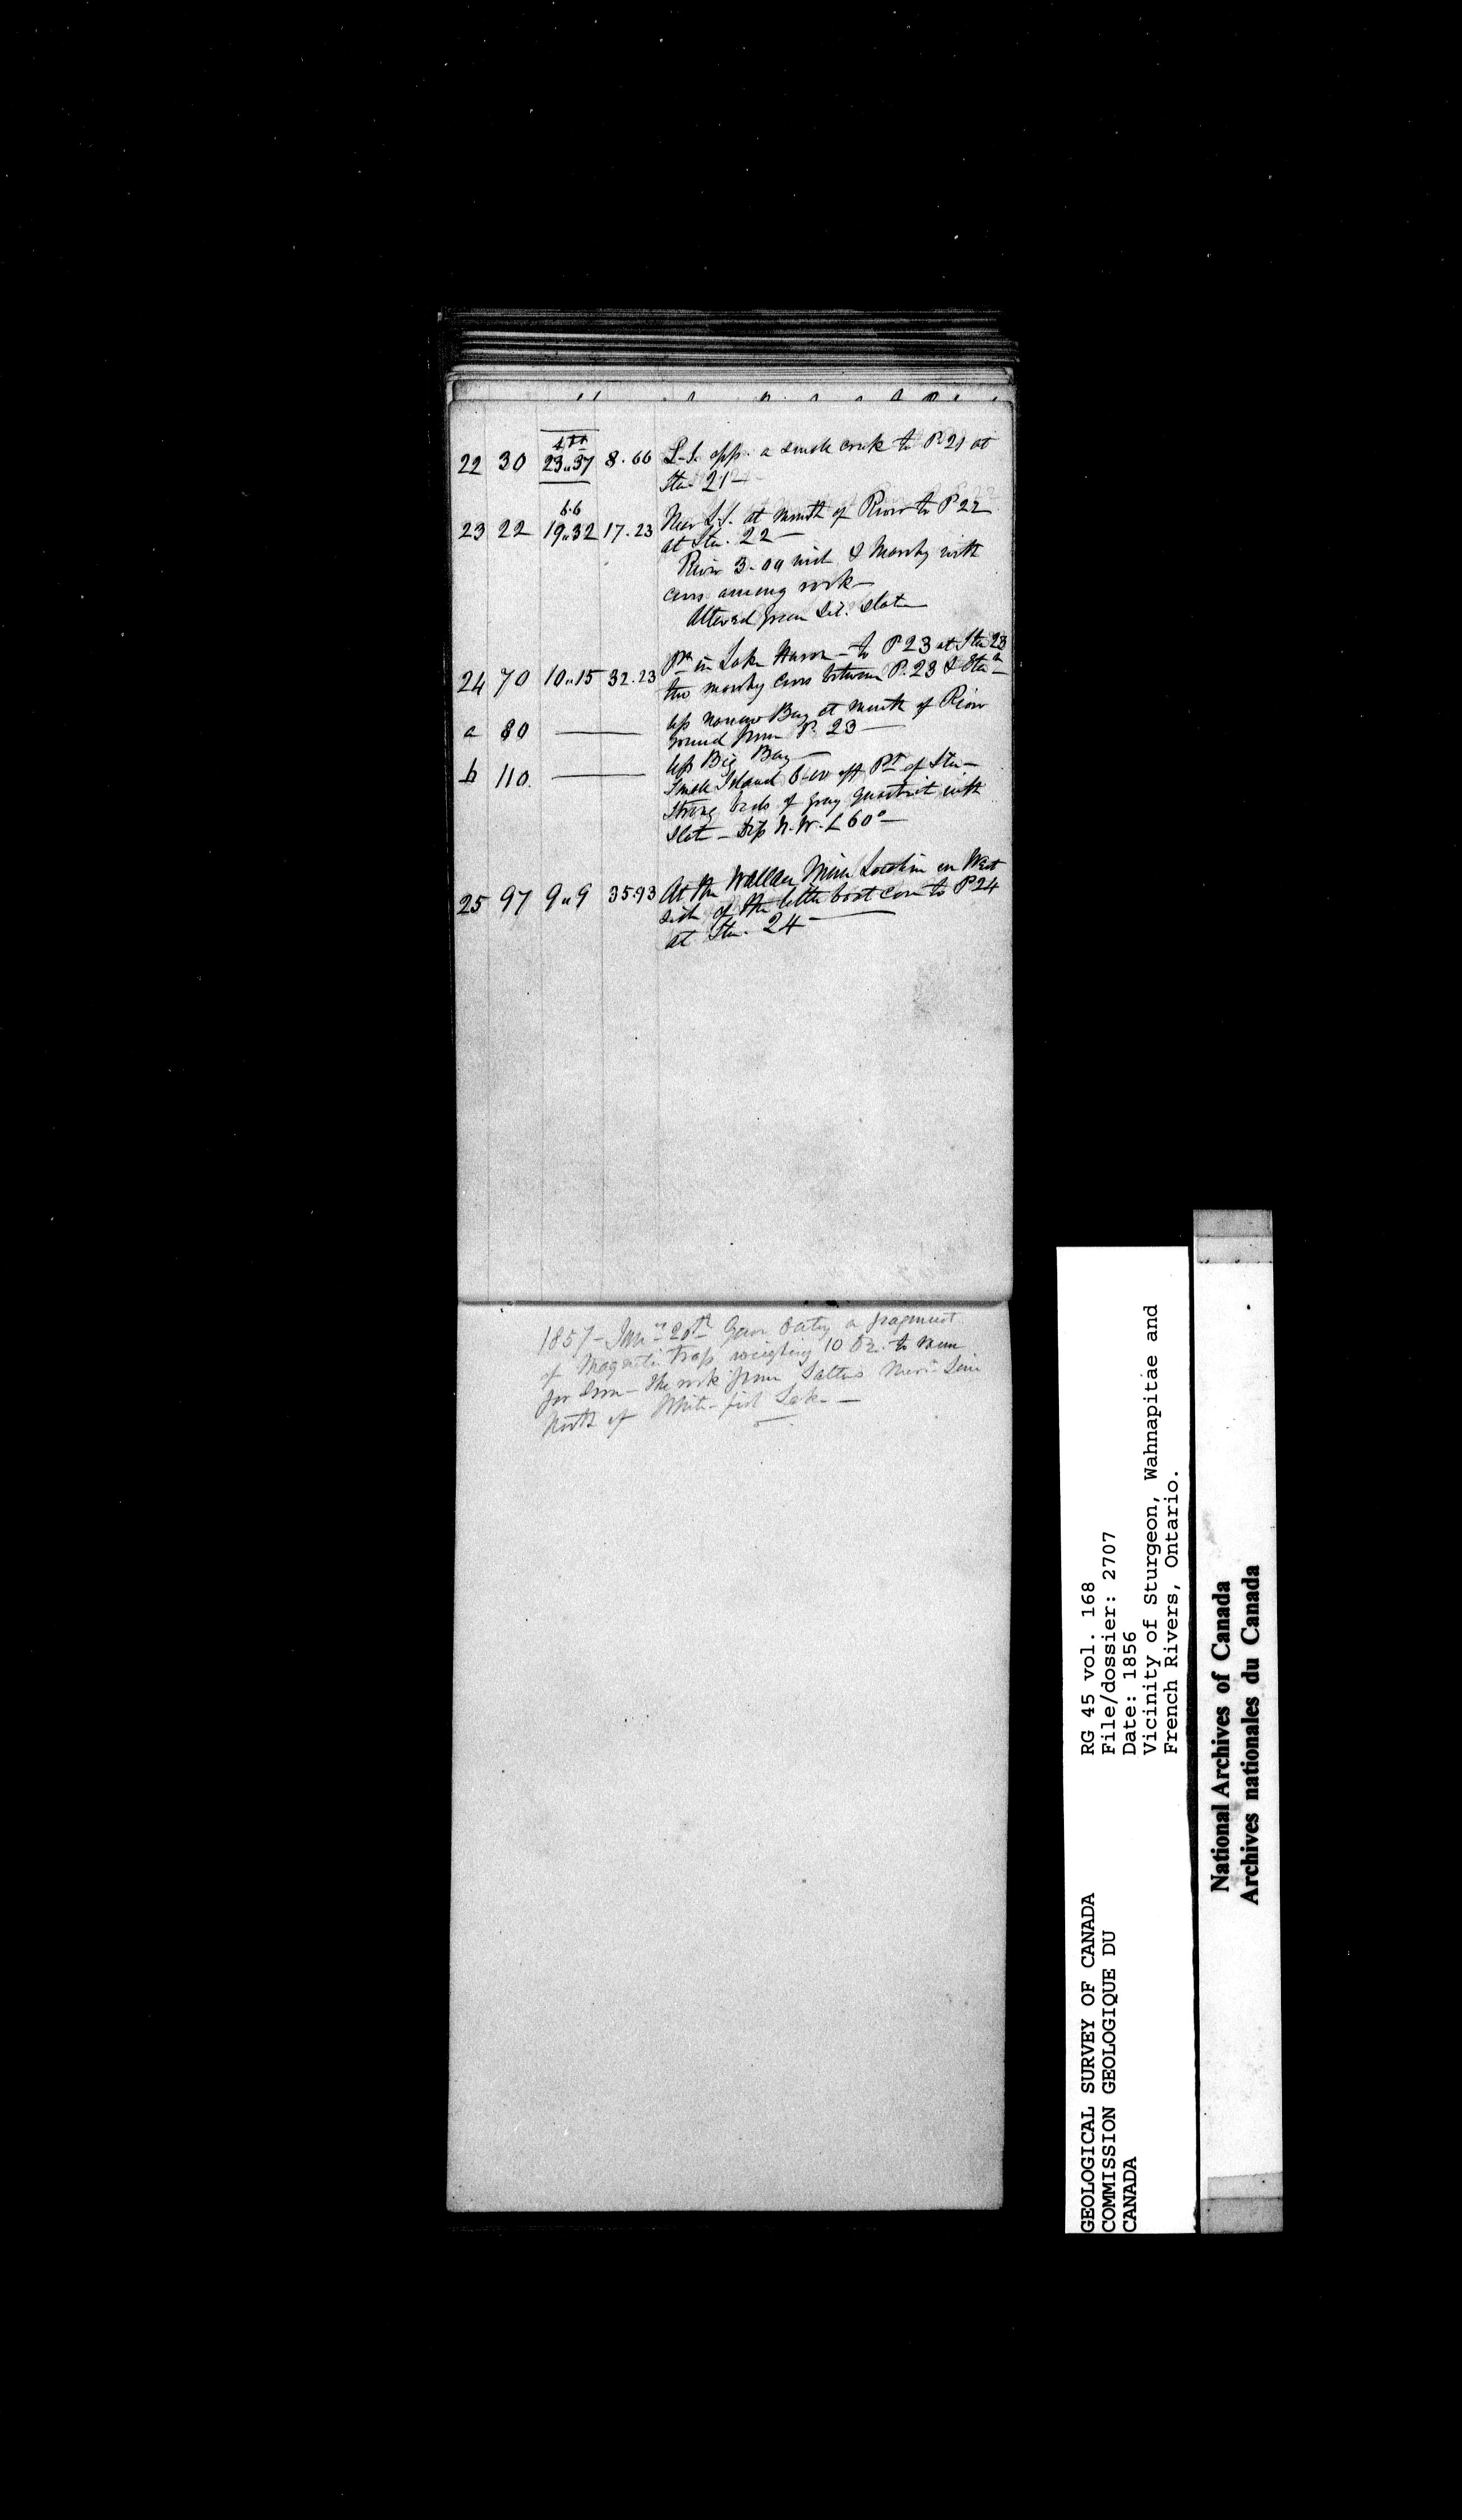 22 30 23.. 37 8.66 L.S. opp. a small creek to P. 21 at
Sta. 21 —
6.6
23 22 19.. 32 17.23 Near L.S. at mouth of River to P 22
at Sta. 22 —
River 3.00 wide & Marshy with
coves among rock —
Altered green Sil. slate —
24 70 10.. 15 32.23 Pt. in Lake Huron — to P 23 at Sta 23
two marshy coves between P. 23 & Sta —
a 80 — up narrow Bay at mouth of River
round from P. 23 —
b 110. — up Big Bay —
Small Island 6.00 off Pt. of Sta —
Strong beds of gray quartzite with
slate — Dip N.W. L 60° —
25 97 9.. 9 35.93 At the Wallace Mine Location on West
side of the little boat cove to P 24
at Sta. 24 —
1857 — 20th Gave a fragment
of Magnetic Trap weighing 10 oz. to
for Iron — the rock from Salters Mern. Line
North of White-fish Lake —
RG 45 vol. 168
File/dossier: 2707
Date: 1856
Vicinity of Sturgeon, Wahnapitae and
French Rivers, Ontario.
GEOLOGICAL SURVEY OF CANADA
COMMISSION GEOLOGIQUE DU
CANADA
National Archives of Canada
Archives nationales du Canada